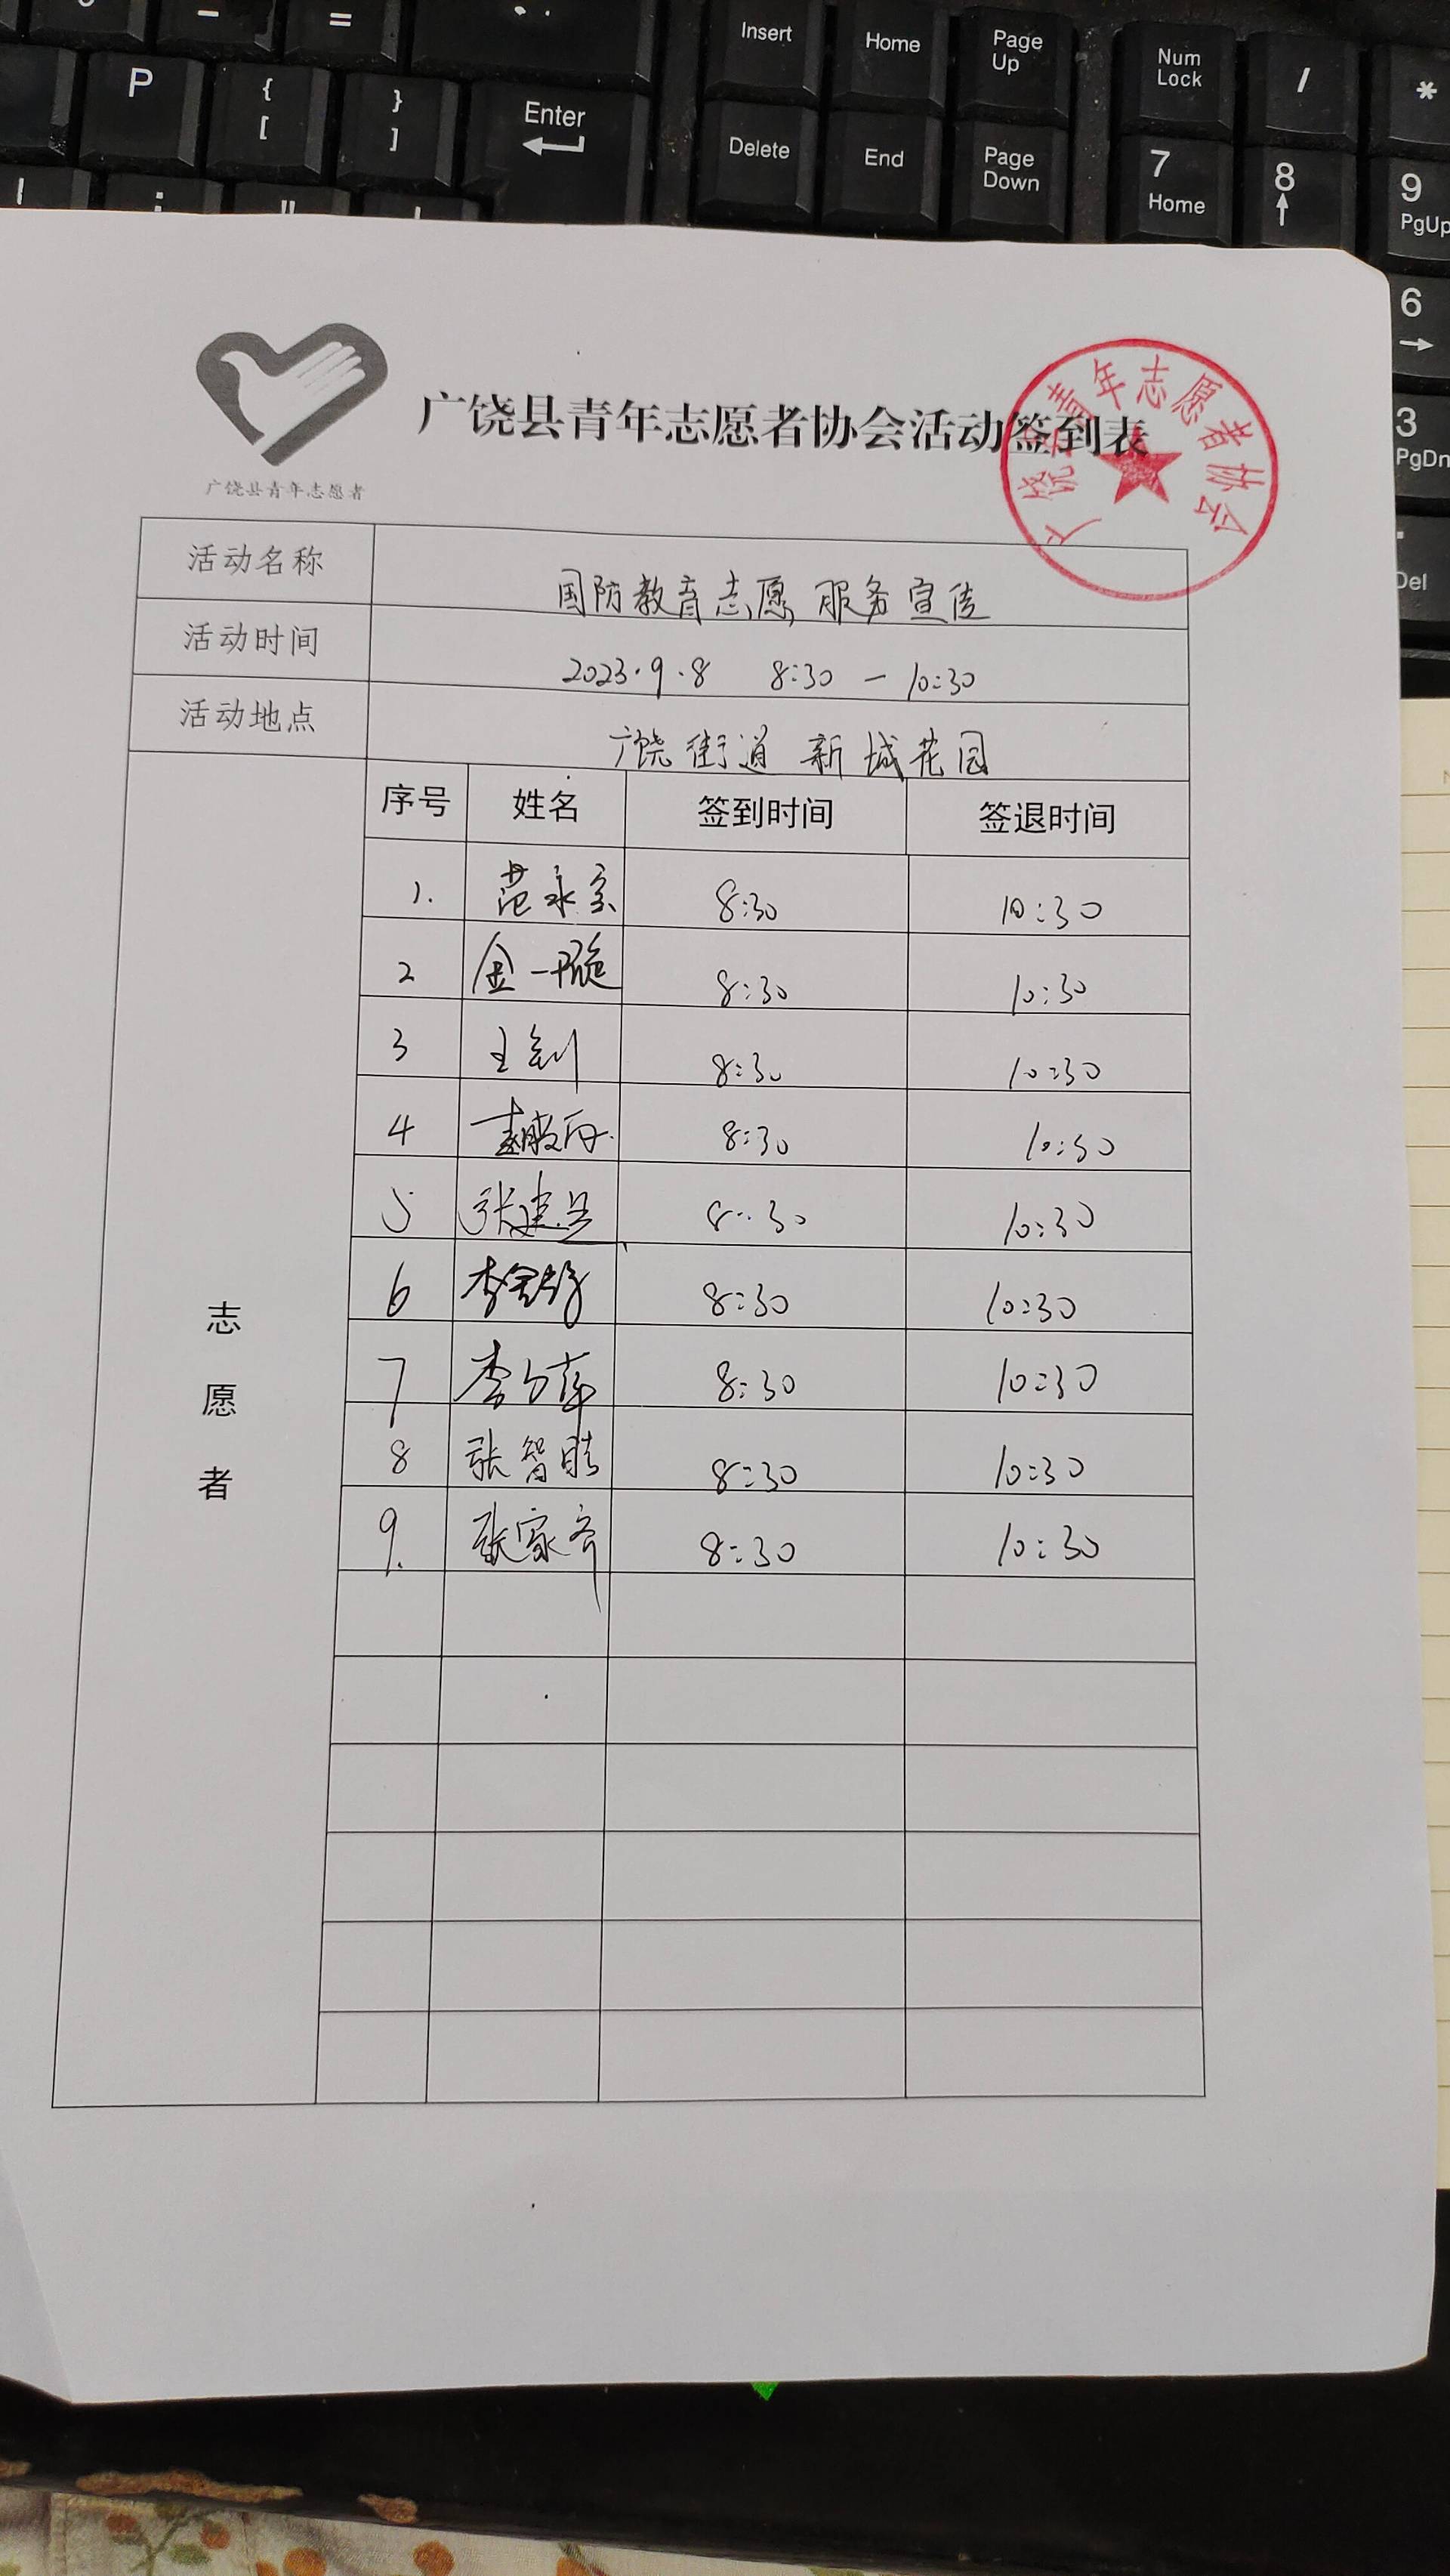 P { [ } ] Enter
Insert Home Page Up
Delete End Page Down
Num Lock / *
7 Home 8 9 PgUp
6
3 PgDn
. Del
广饶县青年志愿者协会活动签到表
广饶县青年志愿者协会
广饶县青年志愿者
活动名称 国防教育志愿服务宣传
活动时间 2023.9.8 8:30 — 10:30
活动地点 广饶街道 新城花园
志愿者
序号 姓名 签到时间 签退时间
1. 范永宗 8:30 10:30
2 金一 8:30 10:30
3 王钊 8:30 10:30
4 8:30 10:30
5 张建 8:30 10:30
6 李 8:30 10:30
7 李 8:30 10:30
8 张智皓 8:30 10:30
9. 张家齐 8:30 10:30